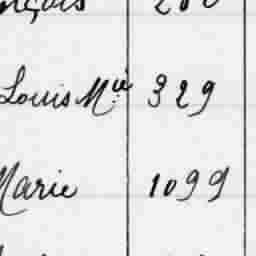 Louis Mie 329
Marie 1099